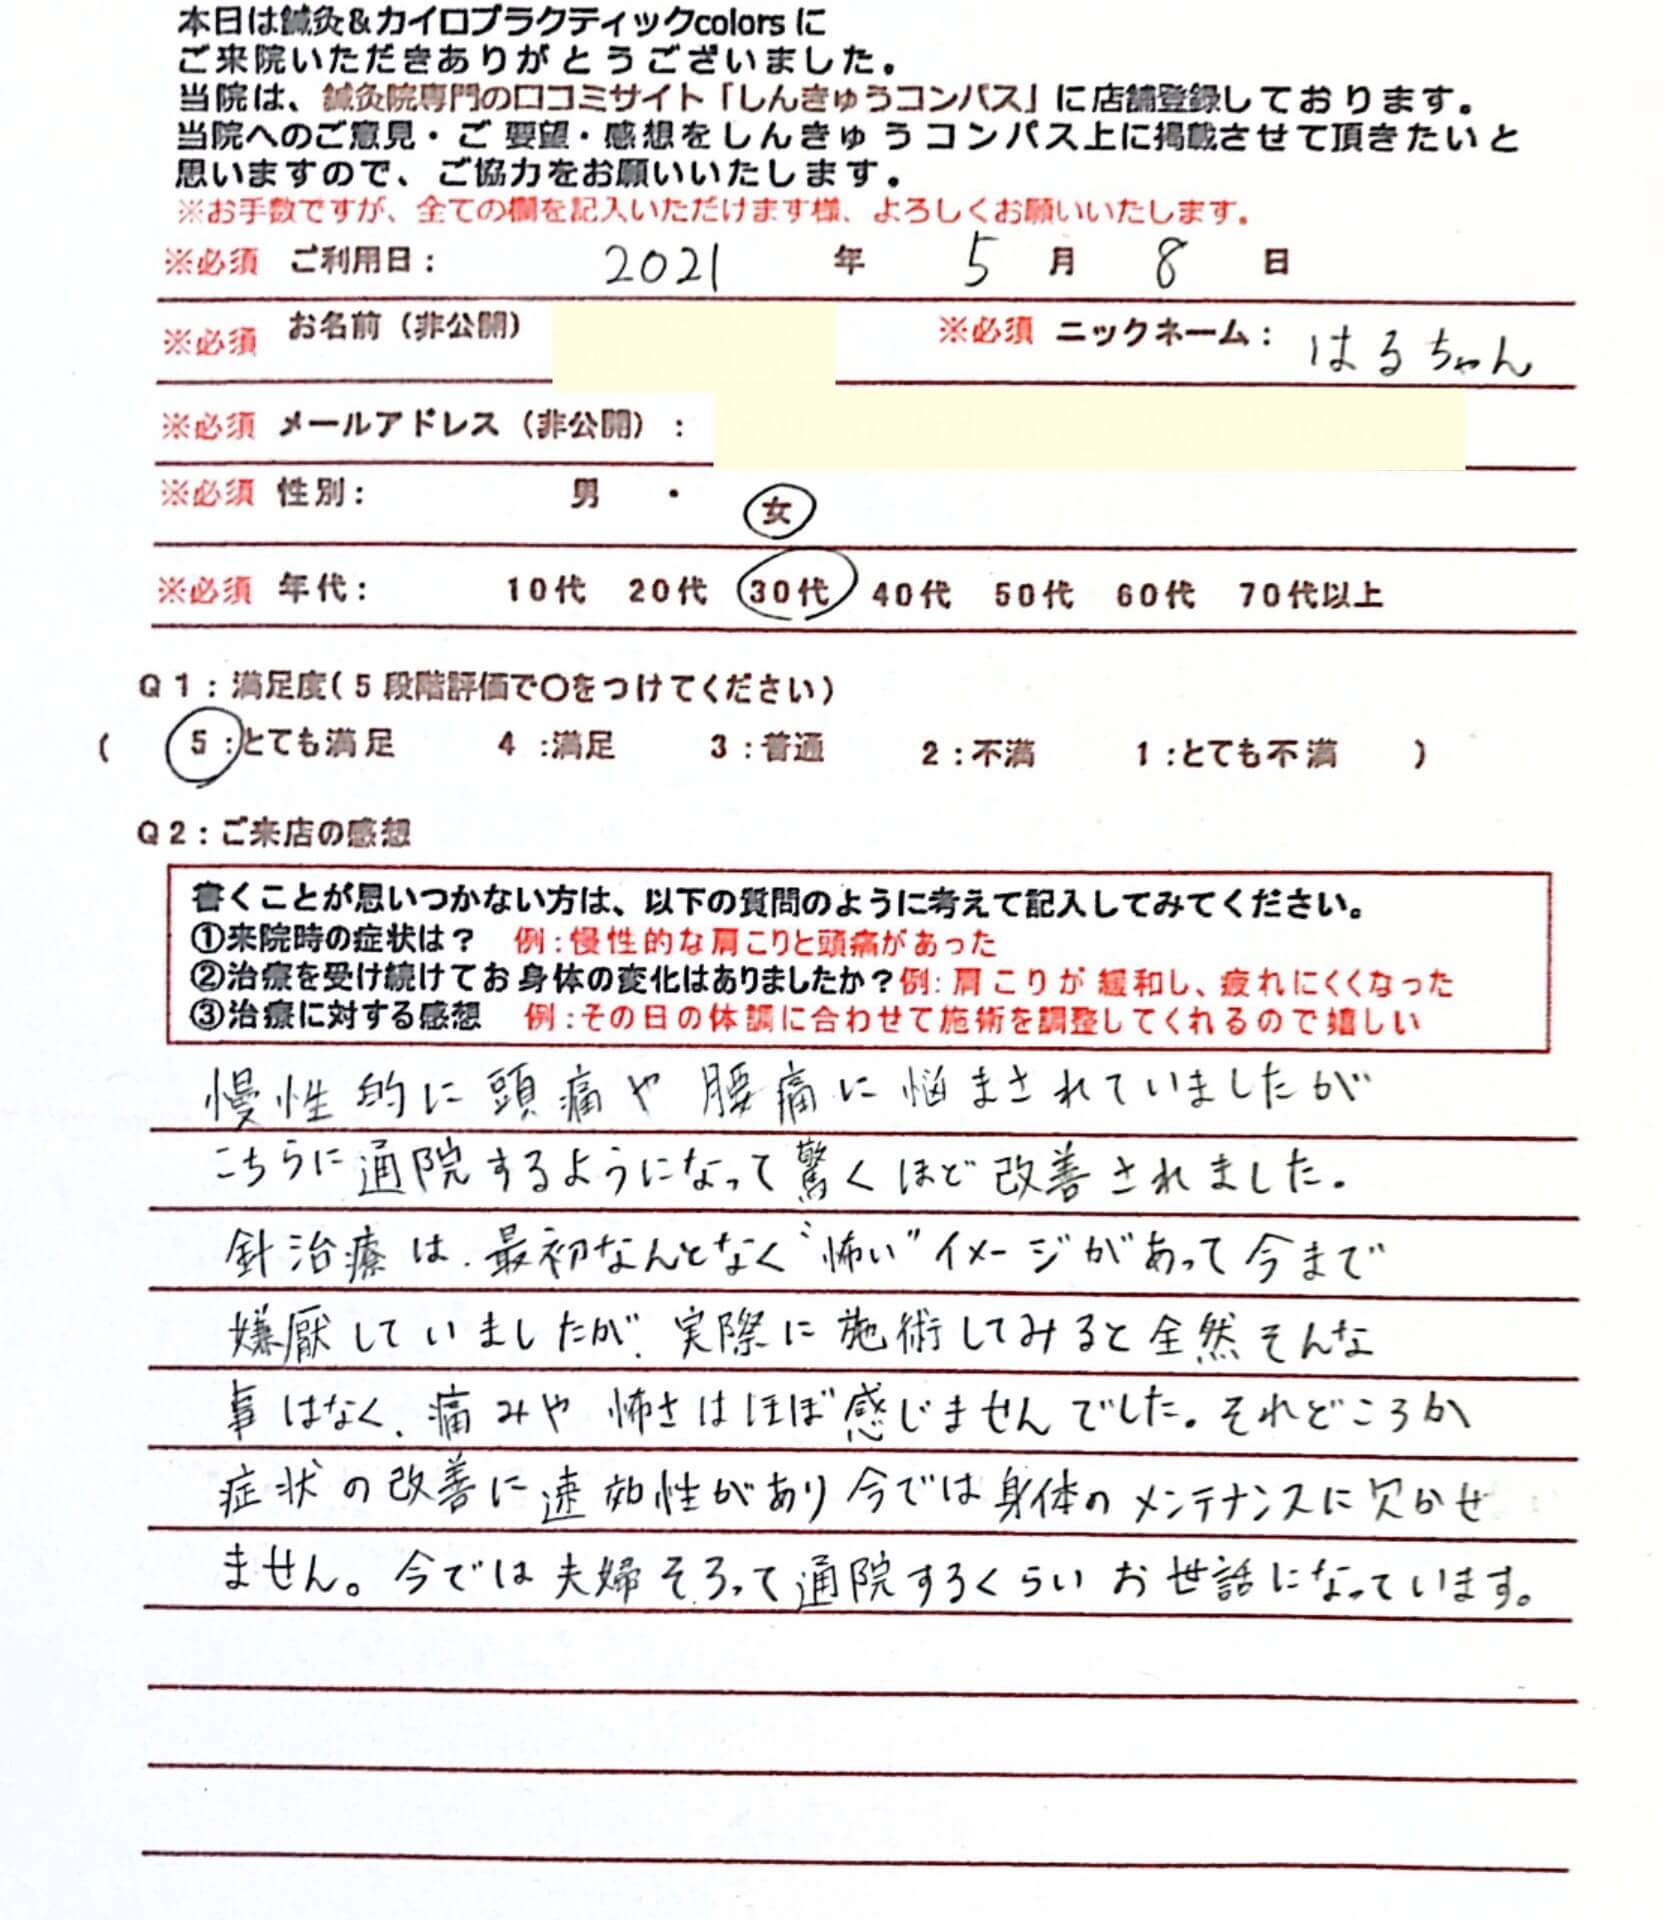 本日は鍼灸&カイロプラクティックcolorsに
ご来院いただきありがとうございました。
当院は、鍼灸院専門の口コミサイト「しんきゅうコンパス」に店舗登録しております。
当院へのご意見・ご要望・感想をしんきゅうコンパス上に掲載させて頂きたいと
思いますので、ご協力をお願いいたします。
※お手数ですが、全ての欄を記入いただけます様、よろしくお願いいたします。
※必須 ご利用日: 2021 年 5 月 8 日
※必須 お名前(非公開) ※必須 ニックネーム: はるちゃん
※必須 メールアドレス(非公開):
※必須 性別: 男 ・ 女
※必須 年代: 10代 20代 30代 40代 50代 60代 70代以上
Q1:満足度(5段階評価で〇をつけてください)
( 5:とても満足 4:満足 3:普通 2:不満 1:とても不満 )
Q2:ご来店の感想
書くことが思いつかない方は、以下の質問のように考えて記入してみてください。
①来院時の症状は? 例:慢性的な肩こりと頭痛があった
②治療を受け続けてお身体の変化はありましたか?例:肩こりが緩和し、疲れにくくなった
③治療に対する感想 例:その日の体調に合わせて施術を調整してくれるので嬉しい
慢性的に頭痛や腰痛に悩まされていましたが
こちらに通院するようになって驚くほど改善されました。
針治療は、最初なんとなく〝怖い〟イメージがあって今まで
嫌厭していましたが、実際に施術してみると全然そんな
事はなく、痛みや怖さはほぼ感じませんでした。それどころか
症状の改善に速効性があり今では身体のメンテナンスに欠かせ
ません。今では夫婦そろって通院するくらいお世話になっています。